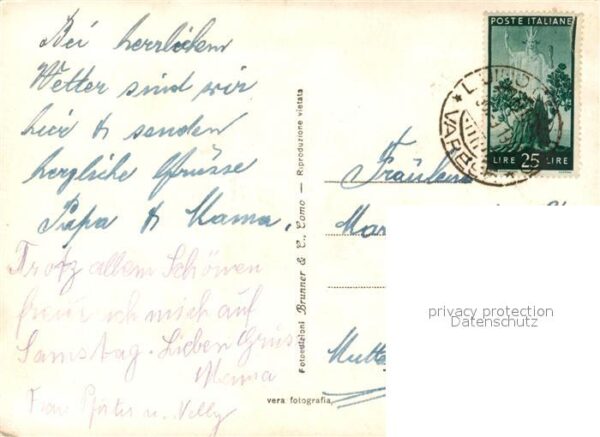 Bei herrlichem
Wetter sind wir
hier & senden
herzliche Grüsse
Papa & Mama.
Trotz allem Schönen
freue ich mich auf
Samstag. Lieben Gruss
Mema
Frau u. Nelly
Fotoedizioni Brunner & C., Como — Riproduzione vietata
vera fotografia
POSTE ITALIANE
LIRE 25 LIRE
VARESE
Fräulein
Mar
Mutte
privacy protection
Datenschutz